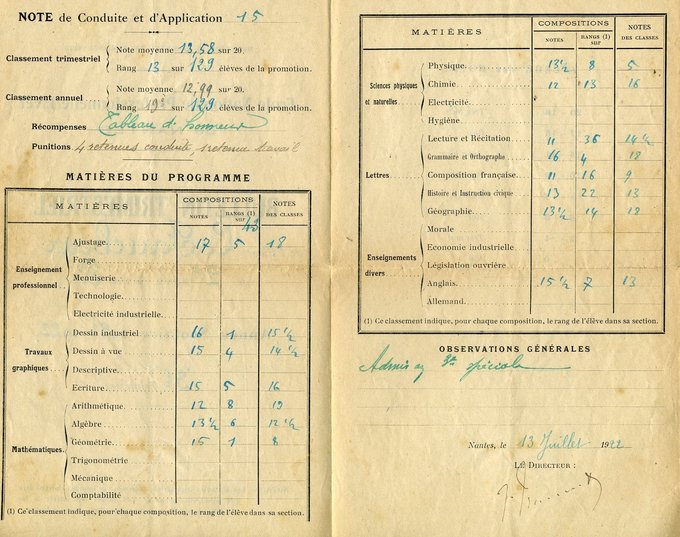 NOTE de Conduite et d'Application 15
Classement trimestriel Note moyenne 13,58 sur 20.
Rang 13 sur 129 élèves de la promotion.
Classement annuel Note moyenne 12,99 sur 20.
Rang 19e sur 129 élèves de la promotion.
Récompenses Tableau d'honneur
Punitions 4 retenues conduite, 1 retenue travail
MATIÈRES DU PROGRAMME
MATIÈRES COMPOSITIONS NOTES RANGS (1) sur 43 NOTES DES CLASSES
Enseignement professionnel.
Ajustage 17 5 18
Forge
Menuiserie
Technologie
Electricité industrielle
Travaux graphiques
Dessin industriel 16 1 15 1/2
Dessin à vue 15 4 14 1/2
Descriptive
Ecriture 15 5 16
Mathématiques
Arithmétique 12 8
Algèbre 13 1/2 6 12 1/2
Géométrie 15 1 8
Trigonométrie
Mécanique
Comptabilité
(1) Ce classement indique, pour chaque composition, le rang de l'élève dans sa section.
MATIÈRES COMPOSITIONS NOTES RANGS (1) sur NOTES DES CLASSES
Sciences physiques et naturelles
Physique 13 1/2 8 5
Chimie 12 13 16
Electricité
Hygiène
Lettres
Lecture et Récitation 11 36 14 1/2
Grammaire et Orthographe 16 4 18
Composition française 11 16 9
Histoire et Instruction civique 13 22 13
Géographie 13 1/2 14
Morale
Enseignements divers
Economie industrielle
Législation ouvrière
Anglais 15 1/2 7 13
Allemand
(1) Ce classement indique, pour chaque composition, le rang de l'élève dans sa section.
OBSERVATIONS GÉNÉRALES
Admis en spéciale
Nantes, le 13 Juillet 1922
LE DIRECTEUR :